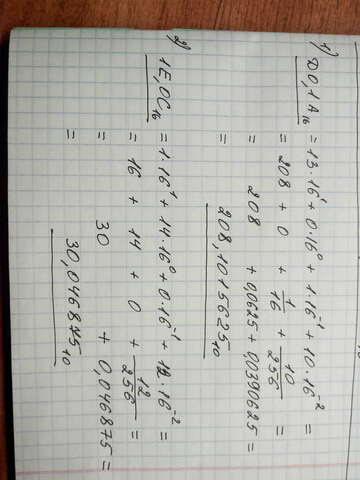 1) D0,1A₁₆ = 13·16¹ + 0·16⁰ + 1·16⁻¹ + 10·16⁻² =
= 208 + 0 + 1/16 + 10/256 =
= 208 + 0,0625 + 0,0390625 =
= 208,1015625₁₀
2) 1E,0C₁₆ = 1·16¹ + 14·16⁰ + 0·16⁻¹ + 12·16⁻² =
= 16 + 14 + 0 + 12/256 =
= 30 + 0,046875 =
= 30,046875₁₀